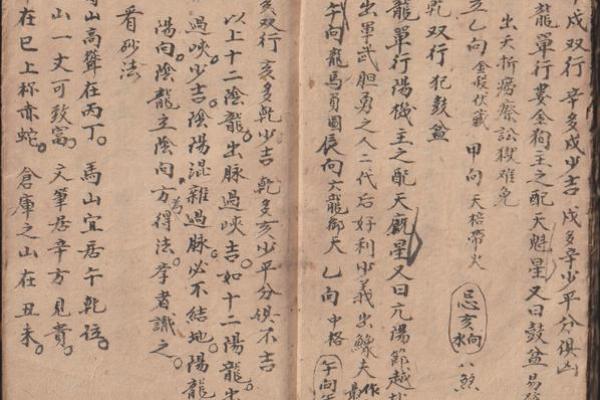 戌双行 辛多戌少吉 戌多辛少平分俱凶
龍單行婁金狗主之配天魁星又曰鼓盆易
出夭折癆瘵訟獄难免
乙向 金殺伏藏 甲向 天棓帶火 忌亥水向 八煞
乾双行犯鼓盆
龍單行陽機主之配天廐星又曰亢陽節越
出軍武胆勇之人二代后好利少義出鰥夫作
午向龍馬負圖 辰向六龍御天 乙向中格 午向
双行亥多乾少吉 乾多亥少平分俱不吉
以上十二陰龍。出脉過峽。吉。如十二陽龍。出
過峽。少吉。陰陽混雜過脉。必不结地。陽龍
陽向。陰龍立陰向。方為得法。李者識之。
看砂法
山高聳在丙丁。馬山宜居午乾位。
山一丈可致富。文筆居辛方見貴。
在巳上称赤蛇。倉庫之山在丑未。